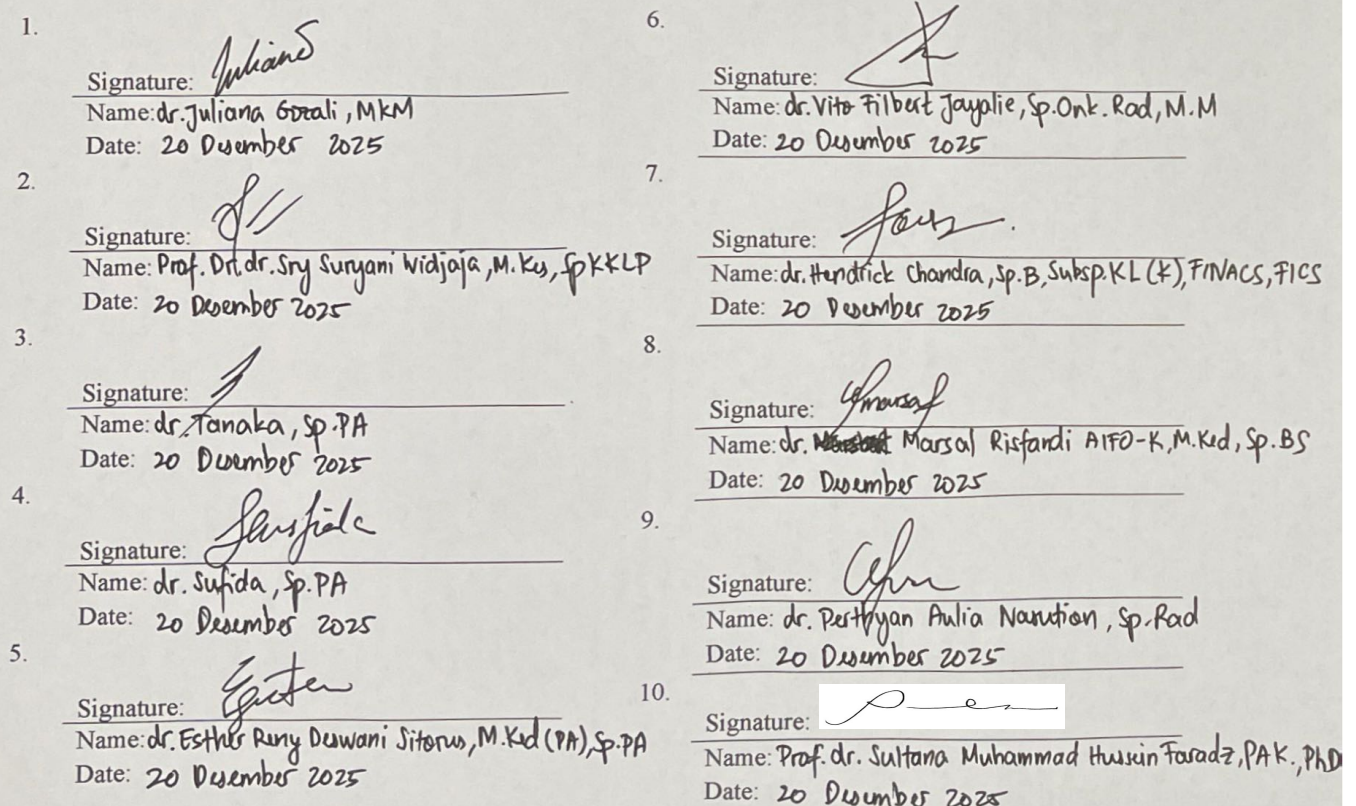 1.
Signature:
Name: dr. Juliana Gozali, MKM
Date: 20 Desember 2025
2.
Signature:
Name: Prof. Dr. dr. Sry Suryani Widjaja, M.Kes, SpKKLP
Date: 20 Desember 2025
3.
Signature:
Name: dr. Tanaka, Sp.PA
Date: 20 Desember 2025
4.
Signature:
Name: dr. Sufida, Sp.PA
Date: 20 Desember 2025
5.
Signature:
Name: dr. Esther Reny Deswani Sitorus, M.Ked (PA), Sp.PA
Date: 20 Desember 2025
6.
Signature:
Name: dr. Vito Filbert Jayalie, Sp.Onk.Rad, M.M
Date: 20 Desember 2025
7.
Signature:
Name: dr. Hendrick Chandra, Sp.B, Subsp.KL (K), FINACS, FICS
Date: 20 Desember 2025
8.
Signature:
Name: dr. Marsal Risfandi AIFO-K, M.Ked, Sp.BS
Date: 20 Desember 2025
9.
Signature:
Name: dr. Perthyan Aulia Nasution, Sp.Rad
Date: 20 Desember 2025
10.
Signature:
Name: Prof. dr. Sultana Muhammad Hussein Faradz, PAK., PhD
Date: 20 Desember 2025